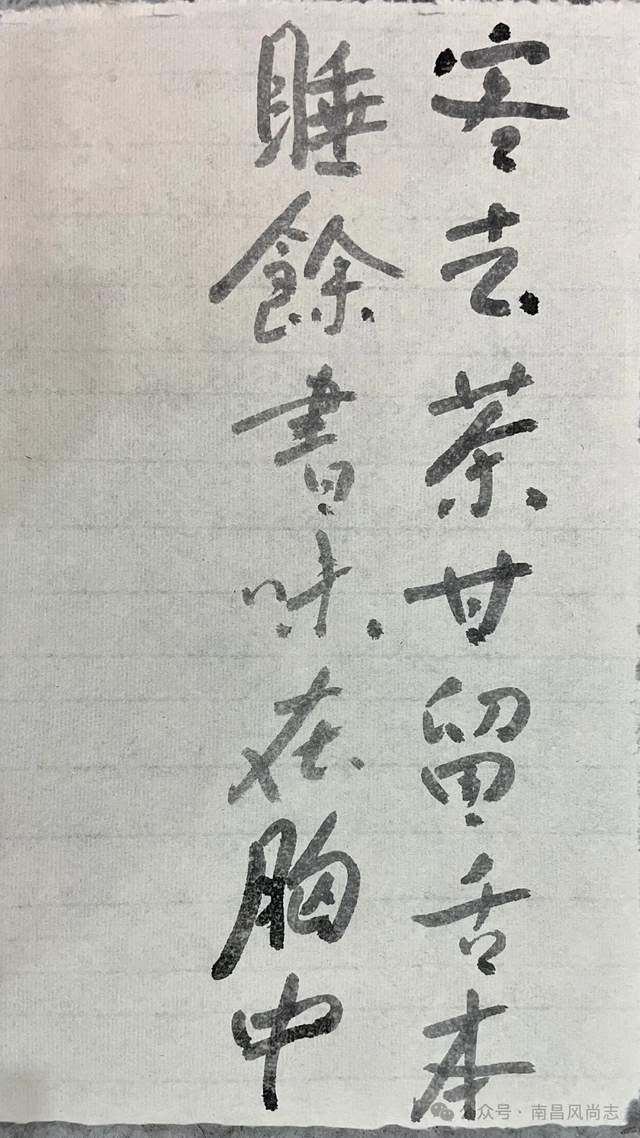 客去茶甘留舌本
睡餘書味在胸中
公众号·南昌风尚志